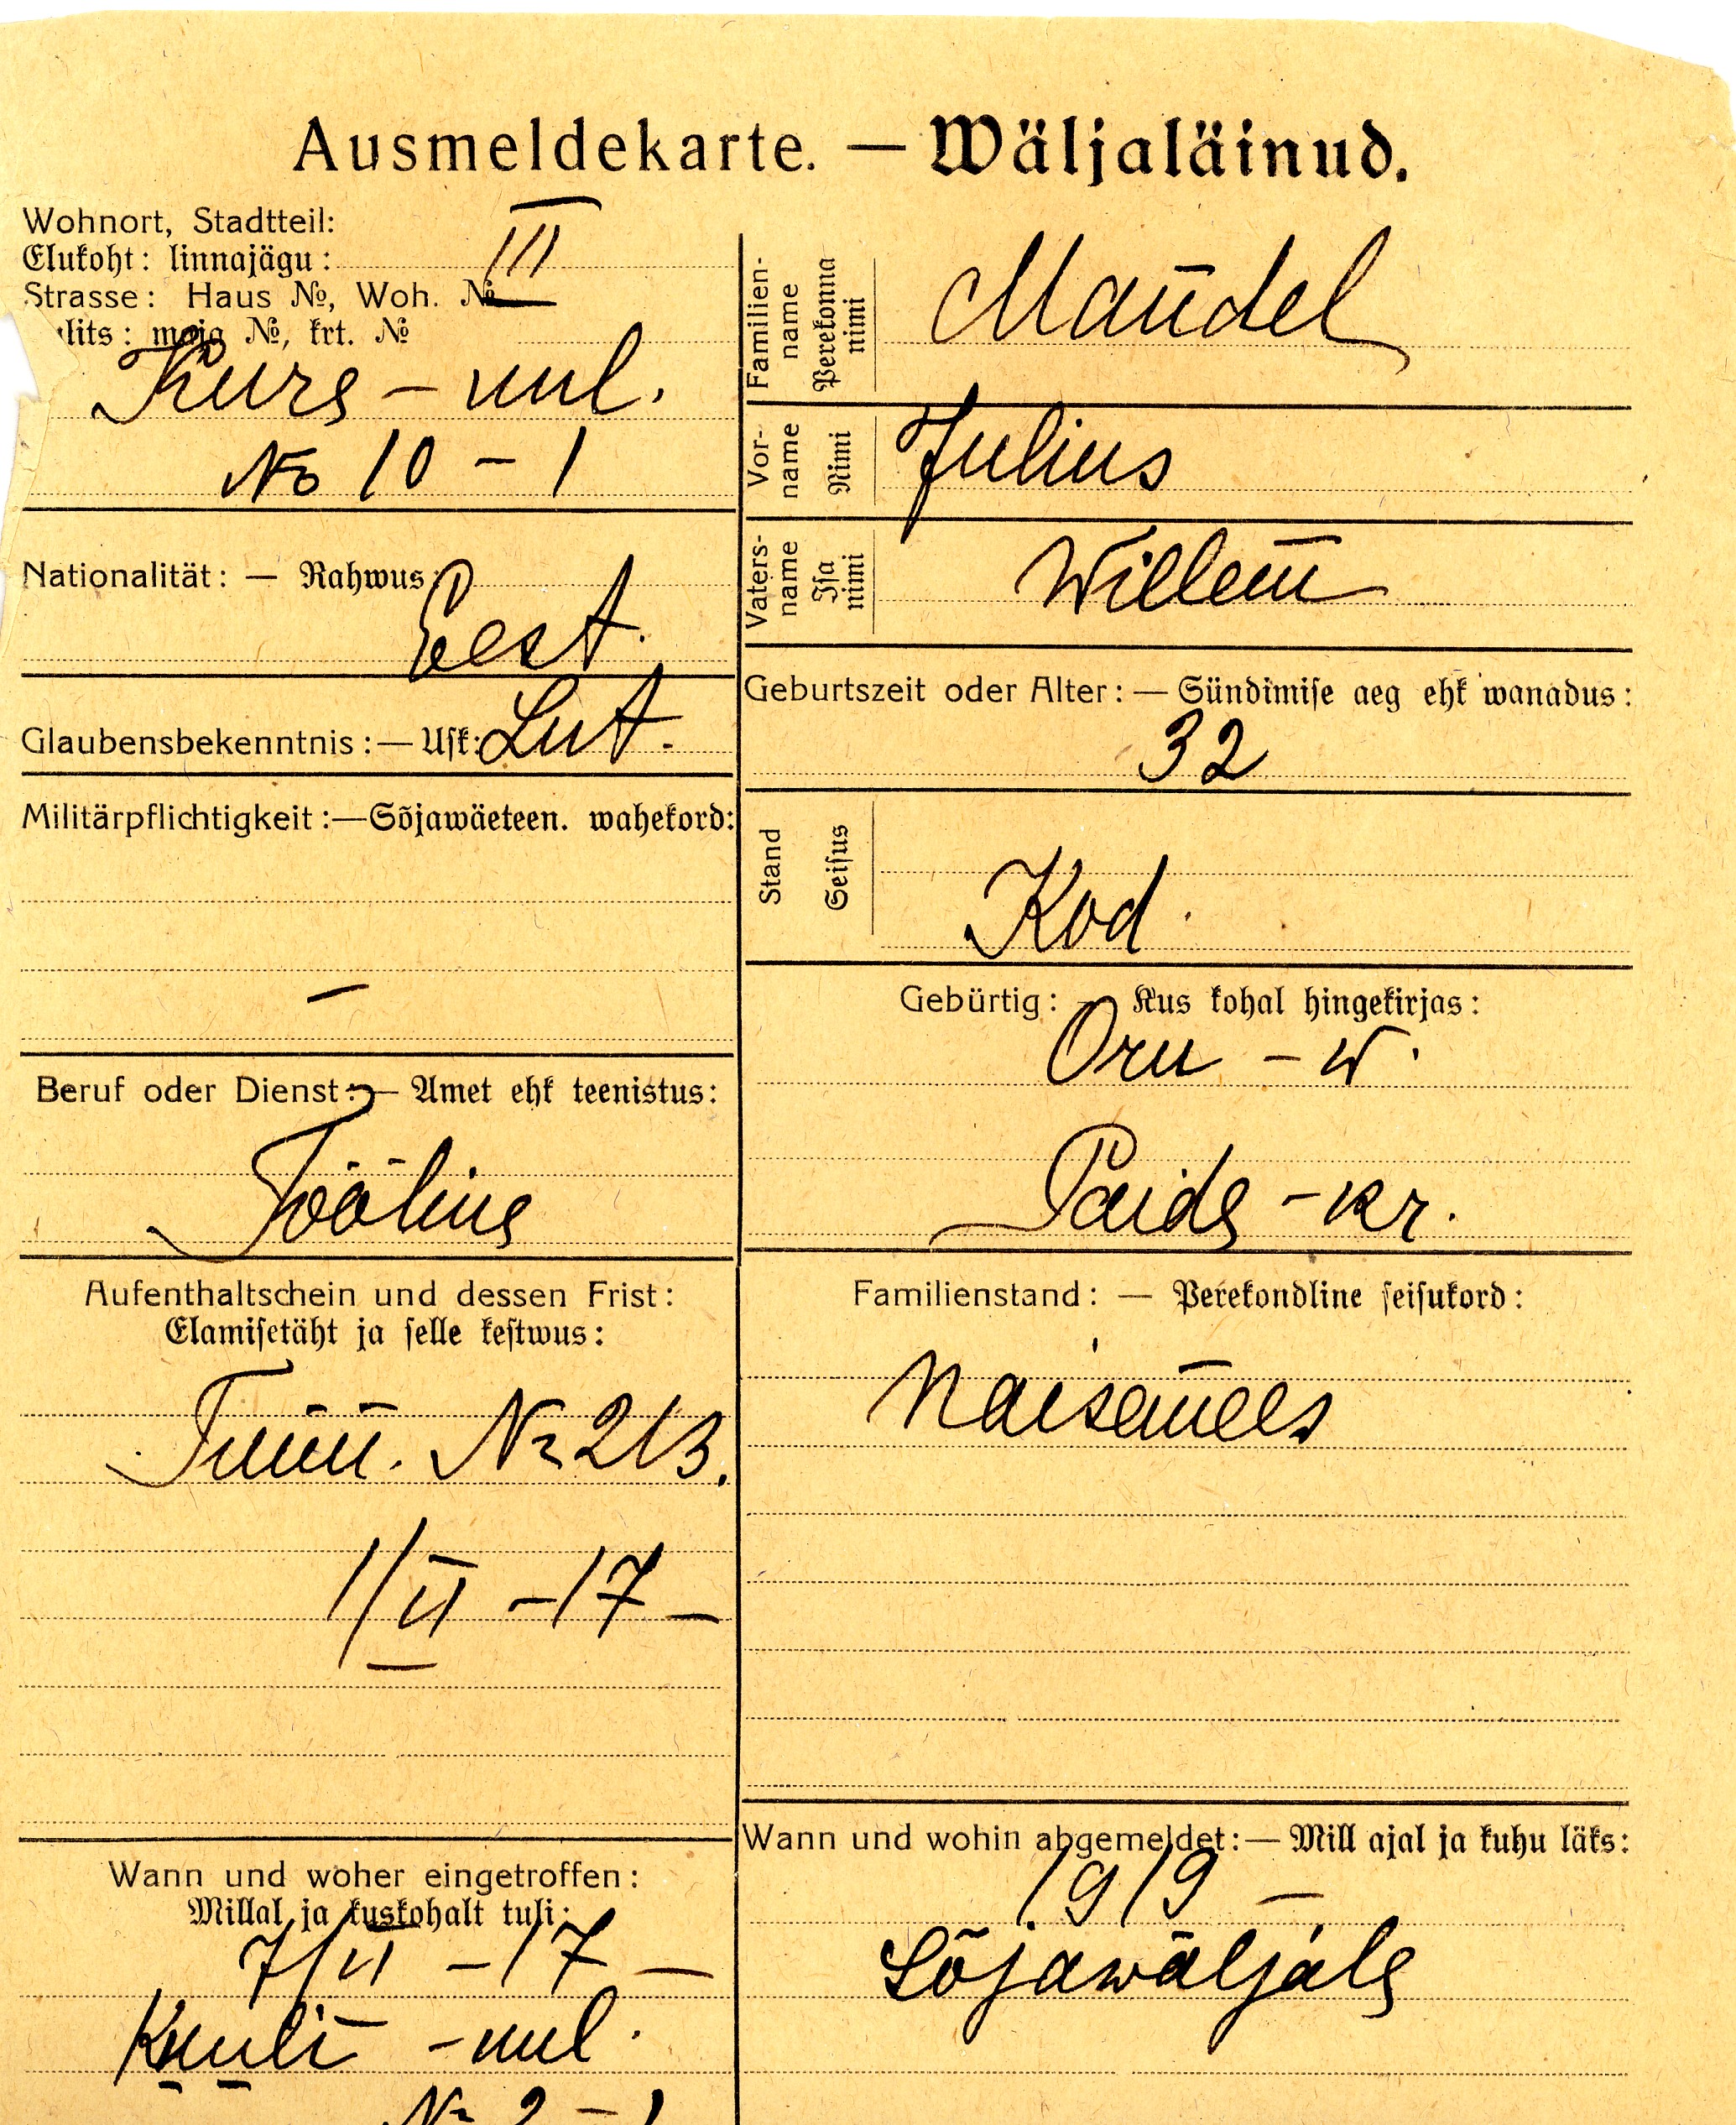 Ausmeldekarte. — Wäljaläinud.
Wohnort, Stadtteil:
Elukoht: linnajägu: III
Strasse: Haus №, Woh. №
ulits: maja №, krt. №
– uul.
№ 10 – 1
Nationalität: — Rahwus:
Eest.
Glaubensbekenntnis: — Usk: Lut.
Militärpflichtigkeit: — Sõjawäeteen. wahekord:
—
Beruf oder Dienst: — Amet ehk teenistus:
Tööline
Aufenthaltschein und dessen Frist:
Elamisetäht ja selle kestwus:
Tunn. № 213.
1/II – 17 –
Wann und woher eingetroffen:
Millal ja kuskohalt tuli:
7/II – 17 —
– uul.
№ 2 – 1
Familien-name Perekonna nimi
Mandel
Vor-name Nimi
Julius
Vaters-name Isa nimi
Willem
Geburtszeit oder Alter: — Sündimise aeg ehk wanadus:
32
Stand Seisus
Kod.
Gebürtig: — Kus kohal hingekirjas:
Oru – w.
Paide – kr.
Familienstand: — Perekondline seisukord:
Naisemees
Wann und wohin abgemeldet: — Mill ajal ja kuhu läks:
1919 –
Sõjawäljale